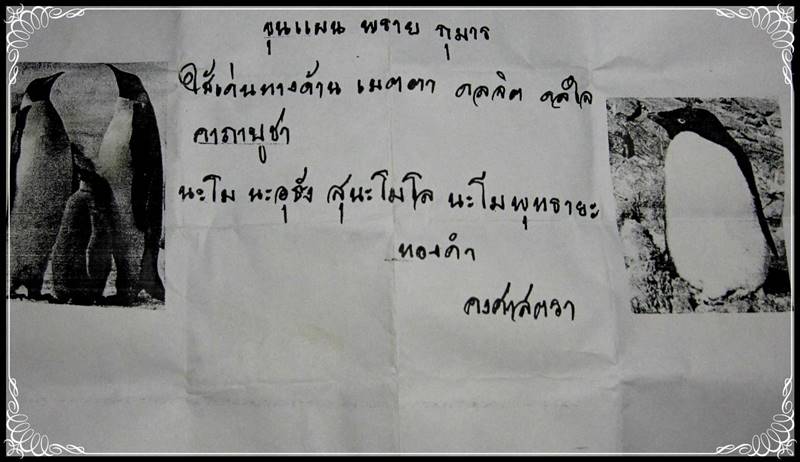 ขุนแผน พราย กุมาร
ใช้เด่นทางด้าน เมตตา ดลจิต ดลใจ
คาถาบูชา
นะโม นะอุชัง สุนะโมโล นะโมพุทธายะ
ทองดำ
คงศาสตรา